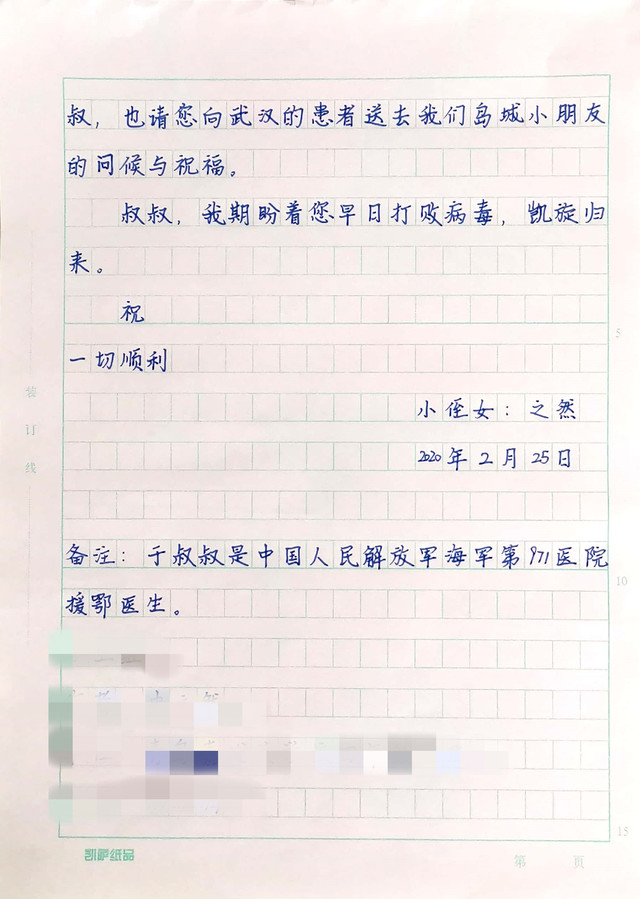 叔，也请您向武汉的患者送去我们岛城小朋友
的问候与祝福。
叔叔，我期盼着您早日打败病毒，凯旋归
来。
祝
一切顺利
小侄女：之然
2020年2月25日
备注：于叔叔是中国人民解放军海军第971医院
援鄂医生。
装订线
5
10
15
凯萨纸品
第 页